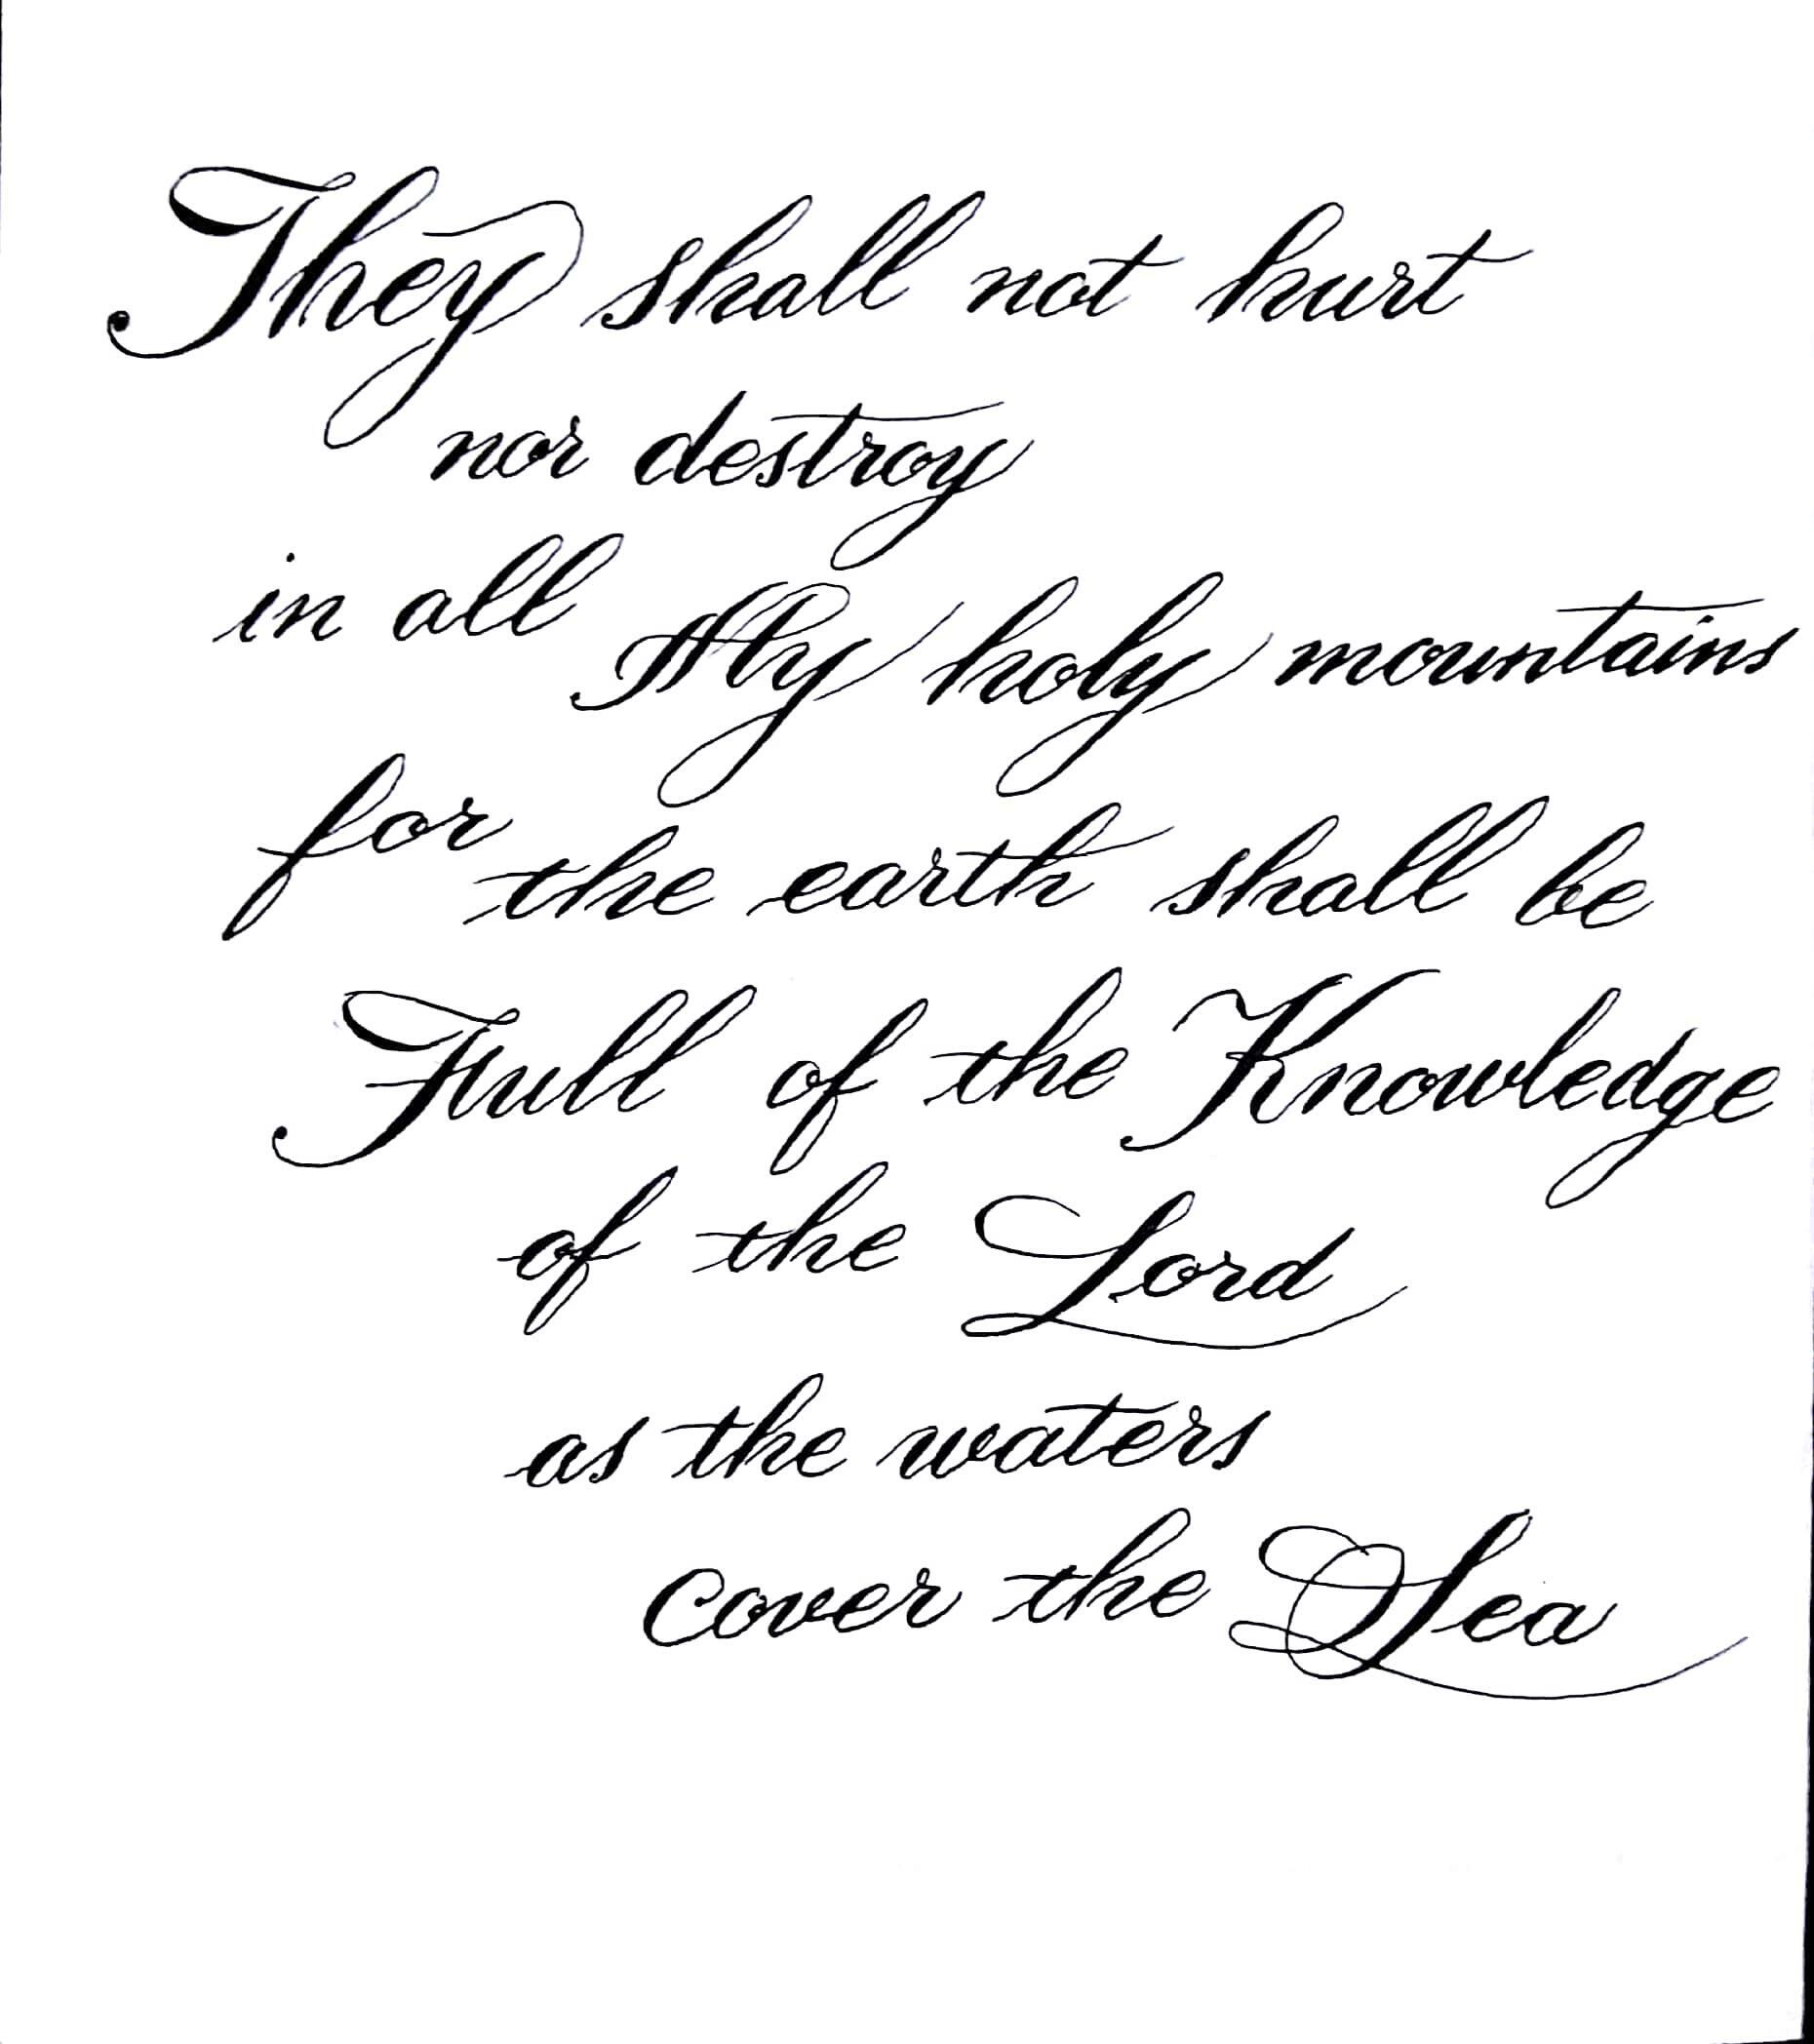 They shall not hurt
nor destroy
in all My holy mountains
for the earth shall be
Full of the Knowledge
of the Lord
as the waters
cover the Sea